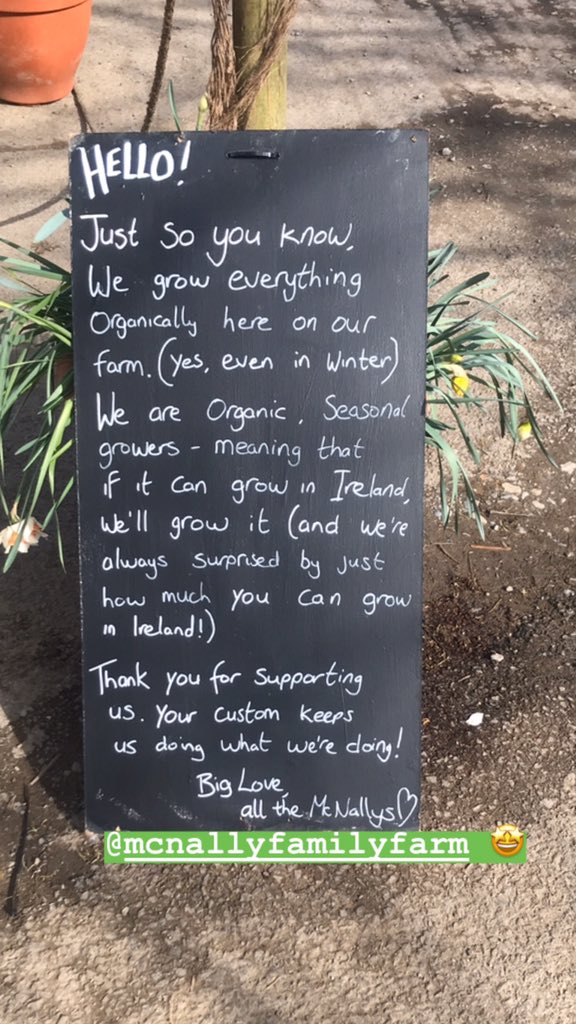 HELLO!
Just so you know,
We grow everything
Organically here on our
farm. (yes, even in Winter)
We are Organic, Seasonal
growers - meaning that
if it can grow in Ireland,
we'll grow it (and we're
always surprised by just
how much you can grow
in Ireland!)
Thank you for supporting
us. Your custom keeps
us doing what we're doing!
Big Love,
all the McNallys♡
@mcnallyfamilyfarm 🤩